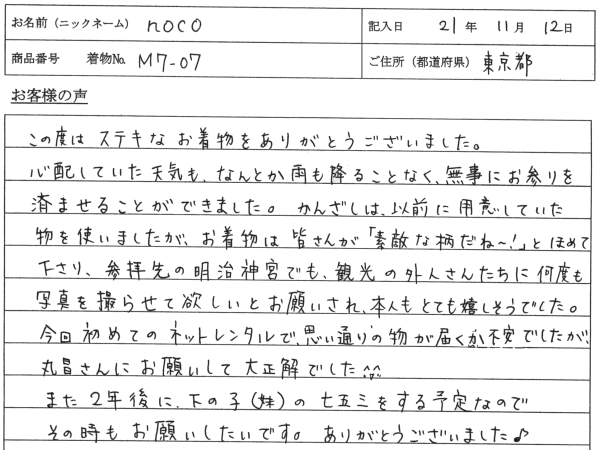 お名前（ニックネーム） noco 記入日 21年 11月 12日
商品番号 着物No. M7-07 ご住所（都道府県） 東京都
お客様の声
この度は ステキな お着物を ありがとうございました。
心配していた 天気も、なんとか 雨も降ることなく、無事に お参りを
済ませることが できました。 かんざしは、以前に 用意していた
物を使いましたが、お着物は 皆さんが「素敵な柄だね～！」と ほめて
下さり、参拝先の 明治神宮でも、観光の外人さんたちに 何度も
写真を 撮らせて 欲しいと お願いされ、本人も とても 嬉しそうでした。
今回 初めての ネットレンタルで、思い通りの 物が 届くか 不安でしたが、
丸昌さんに お願いして 大正解でした^^
また 2年後に、下の子(妹)の 七五三をする予定なので
その時も お願いしたいです。 ありがとうございました♪